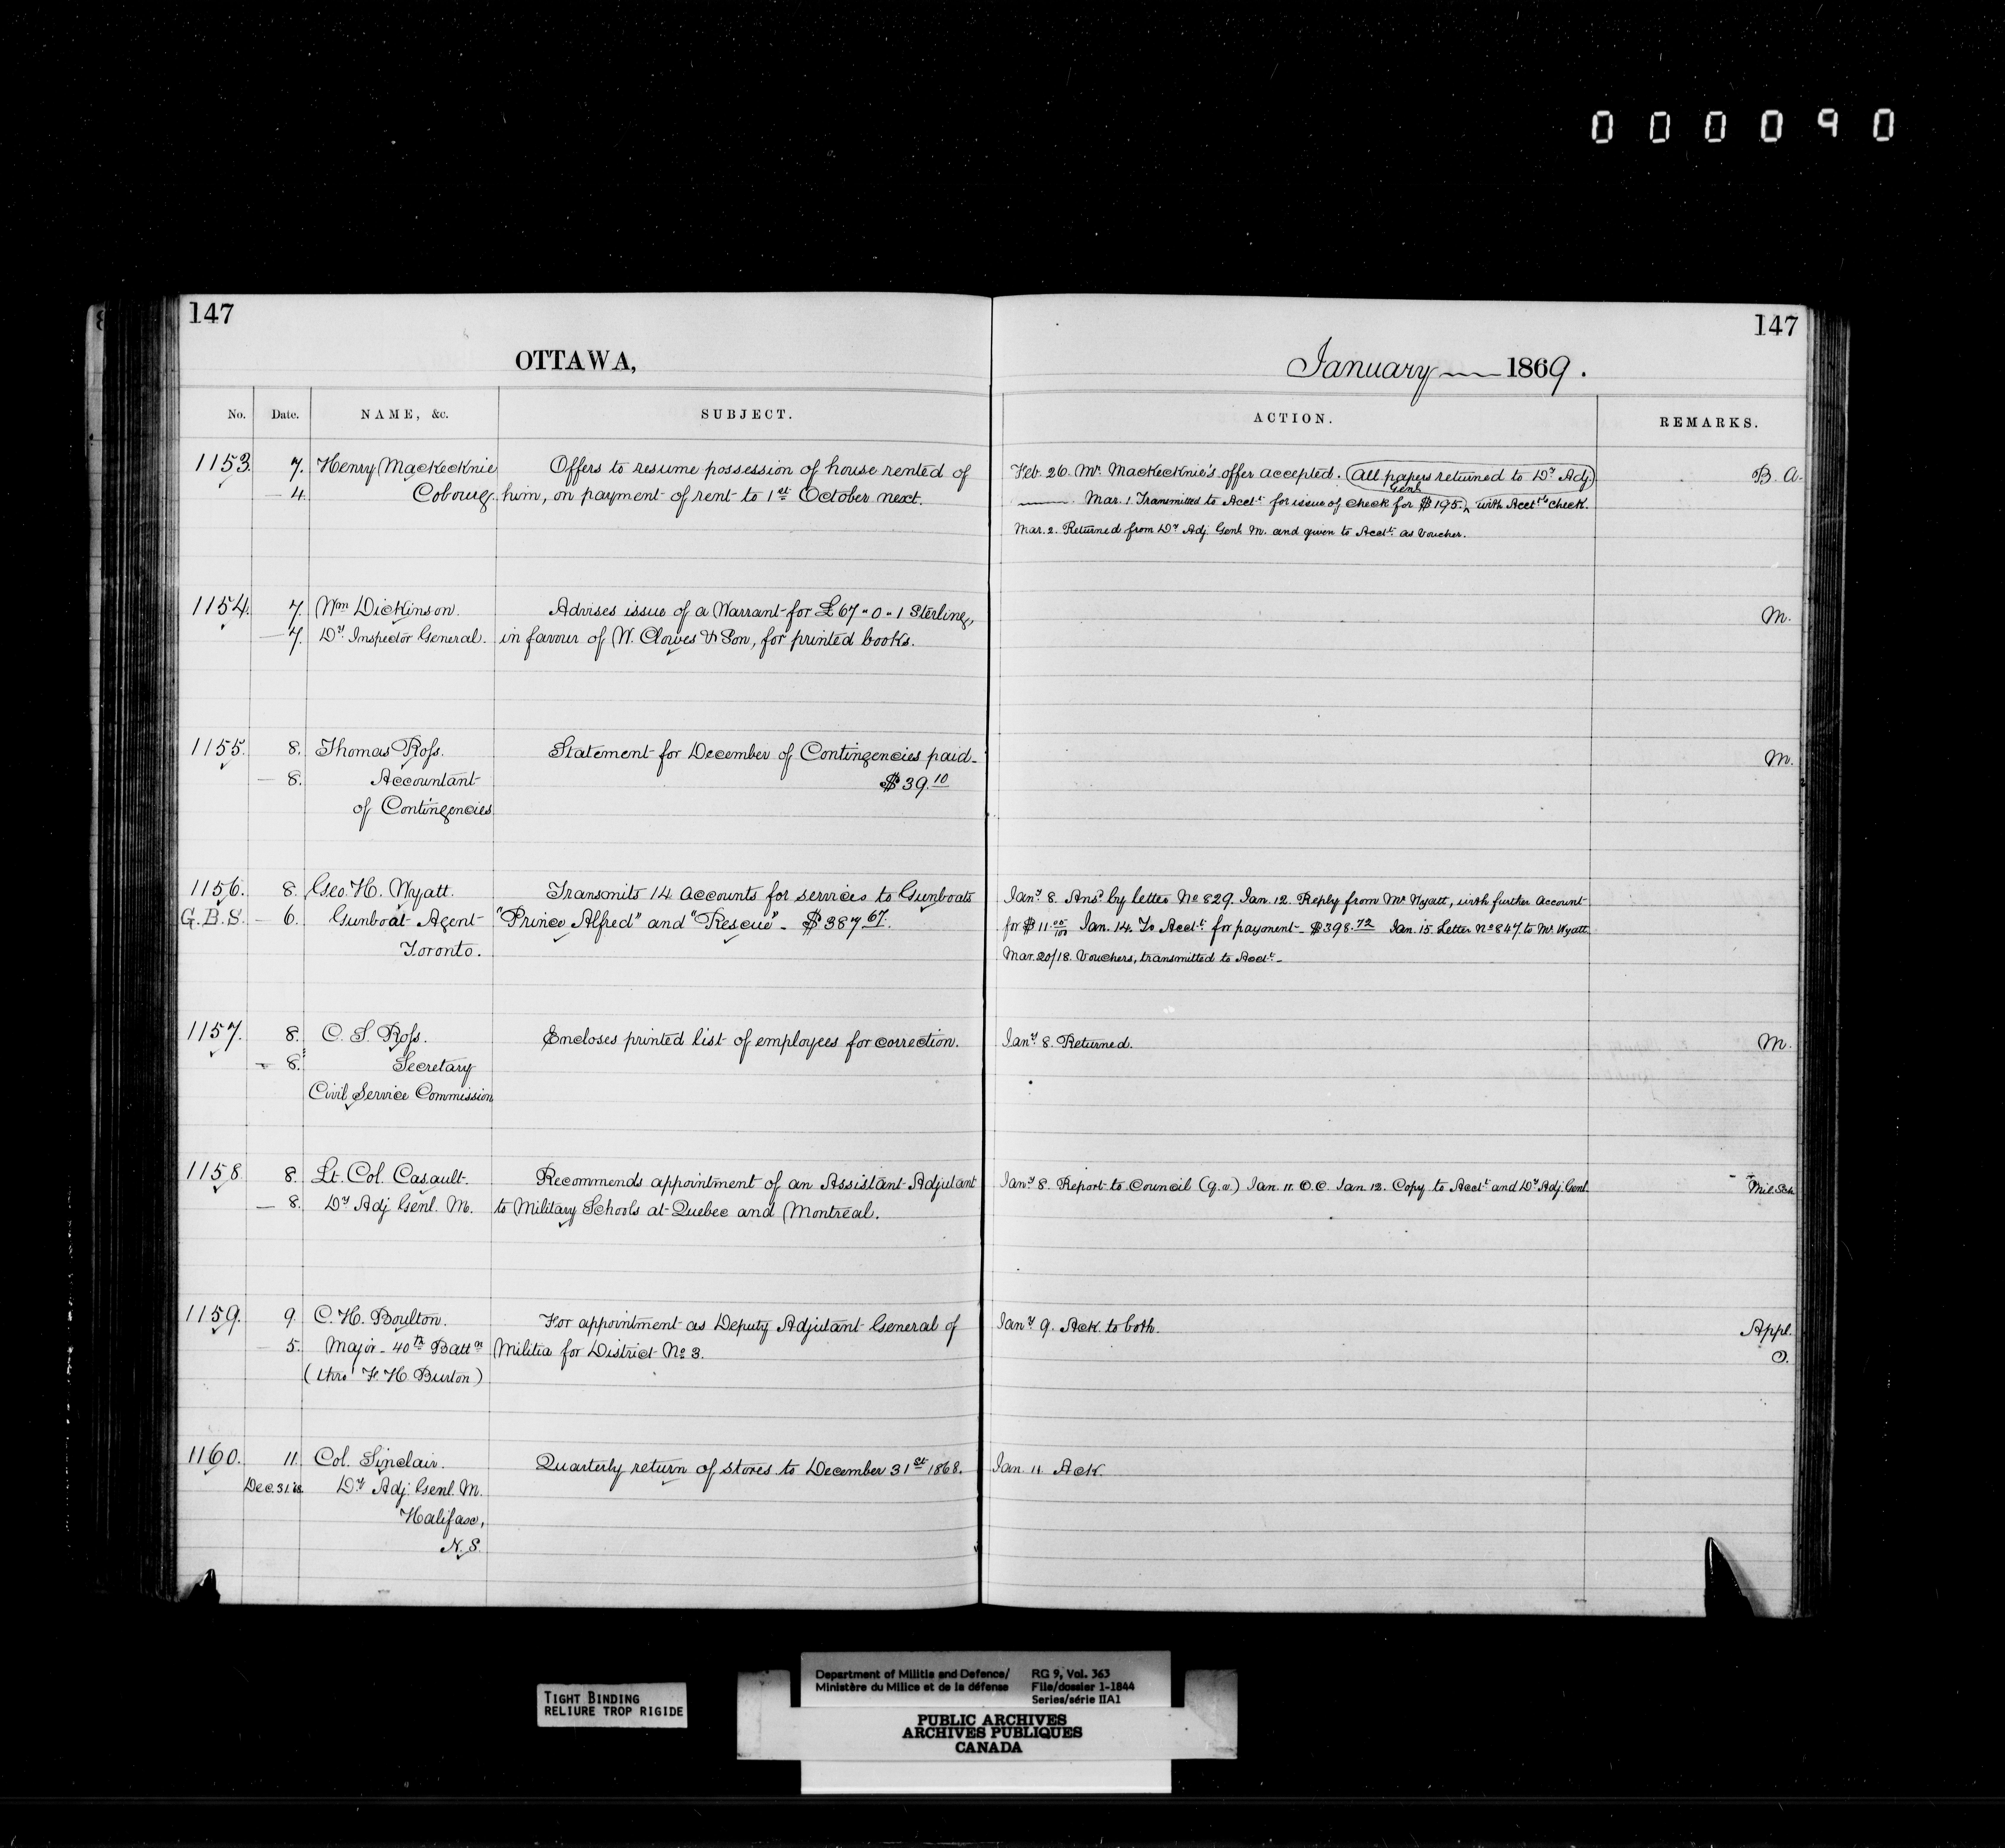 000090
147
147
OTTAWA,
January 1869.
No. Date. NAME, &c. SUBJECT. ACTION. REMARKS.
1153. 7. Henry Mackecknie Offers to resume possession of house rented of Feb. 26. Mr. Mackecknie's offer accepted. (All papers returned to Dy Adj. B. A.
4. Cobourg. him, on payment of rent to 1st October next. Genl.) Mar. 1. Transmitted to Acct. for issue of check for $195. with Acct's check.
Mar. 2. Returned from Dy Adj. Genl. M. and given to Acct. as Voucher.
1154. 7. Wm Dickinson. Advises issue of a Warrant for £67 " 0 " 1 Sterling, M.
7. Dy. Inspector General. in favour of W. Clowes & Son, for printed books.
1155. 8. Thomas Ross. Statement for December of Contingencies paid- M.
8. Accountant $39.10
of Contingencies
1156. 8. Geo. H. Wyatt. Transmits 14 accounts for services to Gunboats Jany 8. Ansd by letter No 829. Jan. 12. Reply from Mr Wyatt, with further Account
G.B.S. 6. Gunboat Agent "Prince Alfred" and "Rescue" - $387.67. for $11.05/100 Jan. 14. To Acct. for payment - $398.72 Jan. 15. Letter No 847 to Mr Wyatt.
Toronto. Mar. 20/18. Vouchers, transmitted to Acct. -
1157. 8. C. S. Ross. Encloses printed list of employees for correction. Jany 8. Returned. M.
8. Secretary
Civil Service Commission
1158 8. Lt. Col. Casault. Recommends appointment of an Assistant Adjutant Jany 8. Report to Council (q.v.) Jan. 11. O.C. Jan. 12. Copy to Acct. and Dy Adj. Genl. Mil. Sch.
8. Dy Adj Genl. M. to Military Schools at Quebec and Montreal.
1159. 9. C. H. Boulton. For appointment as Deputy Adjutant General of Jany 9. Ack. to both. Appl.
5. Major - 40th Battn Militia for District No 3. O.
(thro' F. H. Burton)
1160. 11. Col. Sinclair. Quarterly return of stores to December 31st 1868. Jan. 11. Ack.
Dec. 31.68 Dy Adj. Genl. M.
Halifax,
N.S.
TIGHT BINDING
RELIURE TROP RIGIDE
Department of Militia and Defence/ RG 9, Vol. 363
Ministère du Milice et de la défense File/dossier 1-1844
Series/série IIA1
PUBLIC ARCHIVES
ARCHIVES PUBLIQUES
CANADA